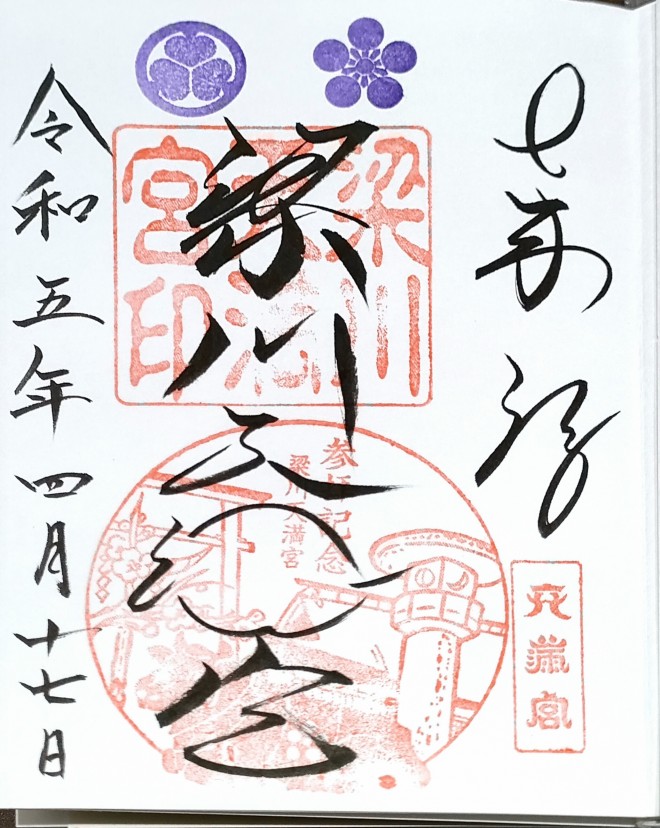 奉拝
天満宮
梁川天満宮
梁川天満宮印
参拝記念
梁川天満宮
令和五年四月十七日